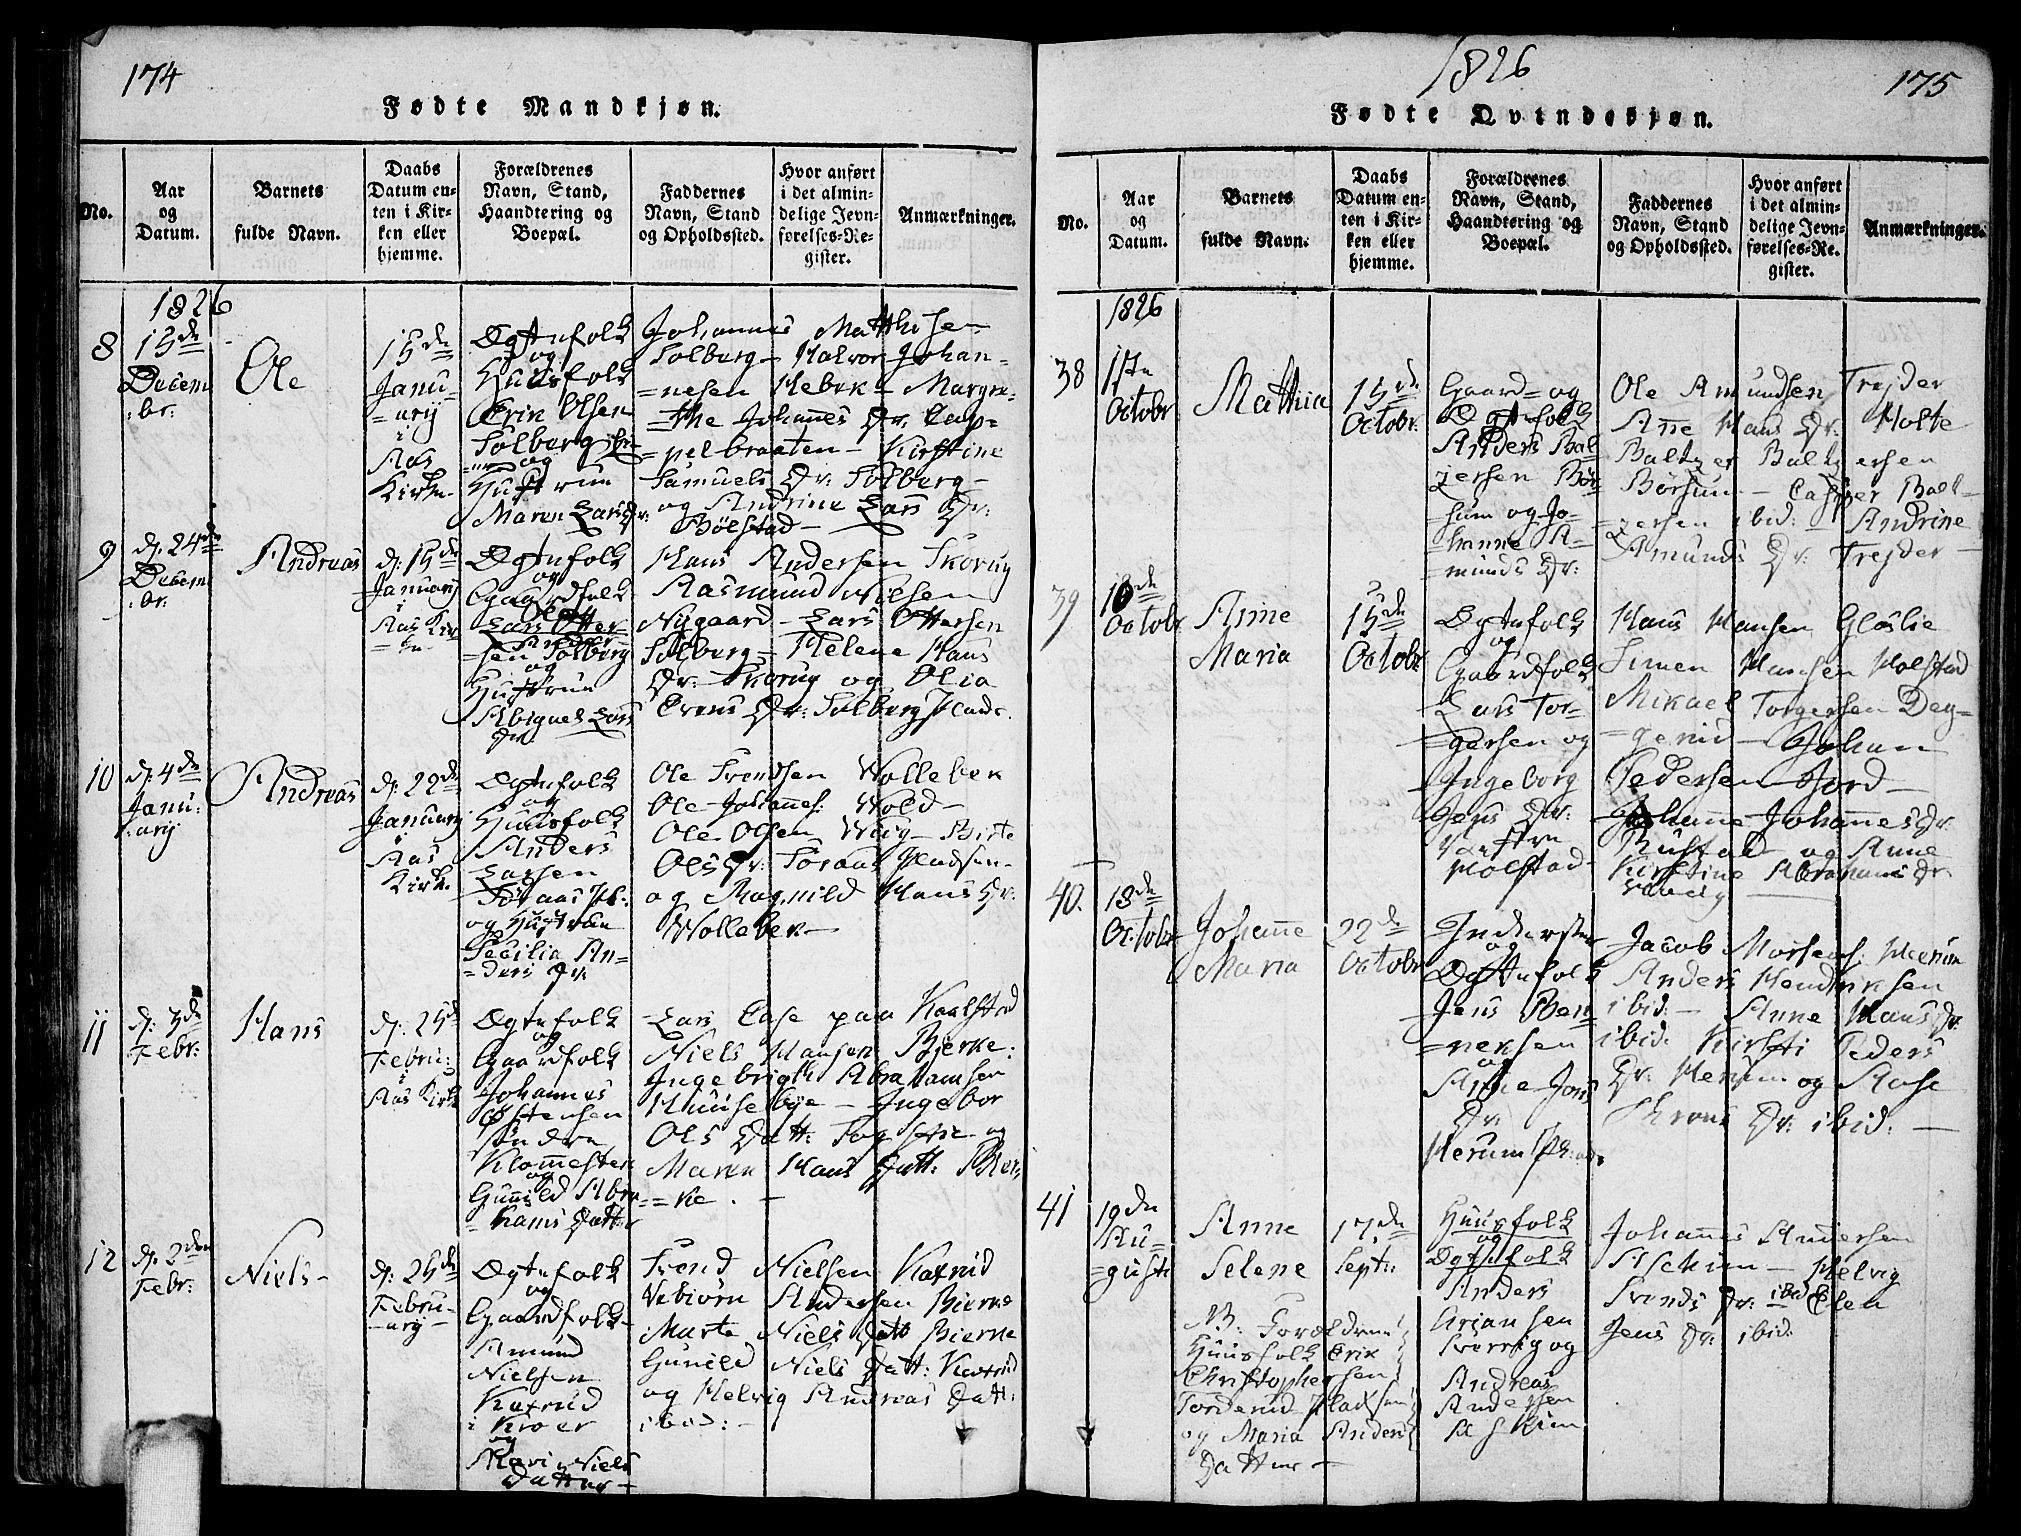 174
Fødte Mandkjøn.
No.
Aar
og
Datum.
Barnets
fulde Navn.
Daabs
Datum en-
ten i Kir-
ken eller
hjemme.
Forældrenes
Navn, Stand,
Haandtering og
Boepæl.
Faddernes
Navn, Stand
og Opholdssted.
Hvor anført
i det almin-
delige Jevn-
førelses-Re-
gister.
Anmærkninger.
1826
8
15de
Decem
:br:
Ole
15de
Janu-
=arij
i
Aas
Kirke
Ægtefolk
og
Huusfolk
Erik Olsen
Solberg
og
Hustrue
Maren Lars Dr:
Johannes Matthisen
Solberg – Halvor Johan-
=nesen Hebek – Margre-
=the Johannes Dr. Cap-
=pelbraaten – Kirstine
Samuels Dr: Solberg –
og Andrine Lars Dr:
Bölstad –
9
d. 24de
Decem
:br:
Andreas
d: 15de
Januarij
i
Aas Kir
=ke
Ægtefolk
og
Gaardfolk
Lars Otter
=sen Solberg
og
Hustrue
Abiguel Lars
Dr
Hans Andersen Skorug
Rasmund Nilsen
Nygaard – Lars Ottersen
Solberg – Helene Hans
Dr: Skorug og Olia
Evens Dr: Solberg Plads.
10
d: 4de
Janu:
:arij
Andreas
d: 22de
Januarij
i
Aas
Kirk.
Ægtefolk
og
Huusfolk
Anders
Larsen
Foraas Pl:
og Hustrue
Cecilia An-
=ders Dr:
Ole Svendsen Wollebek
Ole Johannes: Wold –
Ole Olsen Wug – Birte
Ols Dr: Foraas Pladsen –
og Ragnild Hans Dr:
Wollebek –
11
d: 3de
Febr:
Hans
d: 25de
Febru:
i
Aas Kirk
Ægtefolk
og
Gaardfolk
Johannes
Østensen
Søndre
Klommesten
og
Gunild Abra
=hams Datter
Lars Case paa Kaalstad
Niels Hansen Bjerke:
Ingebrigth Abrahamsen
Huusebye – Ingebor
Ols Datt: Fogstie og
Maren Hans Datt: Bier
=ke. –
12
d. 2den
Febr:
Niels –
d. 25de
Febru-
–arij –
Ægtefolk
og
Gaardfolk –
Amund
Nielsen
Kaxrud
i Kroer
og
Mari Niels
Datter –
Svend Nielsen Kaxrud
Vebiörn Andersen Bierke
Marte Niels Datt Bierke
Gunild Niels Datt: Kaxrud
og Helvig Andreas Datt:
ibid: –
1826
175
Fødte Qvindekjøn.
No.
Aar
og
Datum.
Barnets
fulde Navn.
Daabs
Datum en-
ten i Kir-
ken eller
hjemme.
Forældrenes
Navn, Stand,
Haandtering og
Boepæl.
Faddernes
Navn, Stand
og Opholdssted.
Hvor anført
i det almin-
delige Jevn-
førelses-Re-
gister.
Anmærkninger.
1826
38
1ste
Octobr
Mathia
15de
Octobr:
Gaard= og
Ægtefolk
Anders Bal
zersen Bör
=sum og Jo-
=hanne A-
=munds Dr:
Ole Amundsen Trejder
Anne Hans Dr: Holte
Baltzer Baltzersen
Börsum – Casper Balt-
=zersen ibid: Andrine
Amunds Dr: Trejder –
39
10de
Octobr
Anne
Maria
15de
Octobr
Ægtefolk
og
Gaardfolk
Lars Tor-
=gersen og
Ingeborg
Jens Dr:
Holstad –
Hans Hansen Gloslie
Simen Hansen Holstad
Mikael Torgersen Dey-
=gerud – Johan
Pedersen Fjord –
Johanne Johannes Dr:
Rustad – og Anne
Kirstine Abrahams Dr:
40.
13de
Octobr
Johanne
Maria
22de
Octobr
Inderster
og
Ægtefolk
Jens Ben
=neksen
og
Anne Jons
Dr:
Herum
Jacob Morsens: Herum
Anders Hendriksen
ibid: – Anne Hans Dr:
ibid: Kirsti Peders
Dr: Herum og Aase
Throns Dr: ibid: –
41
19de
Au-
=gusti
Anne
Selene
17de
Sept:
Huusfolk
og
Ægtefolk
Anders
Ariansen
Sverrig og
Andrea
Andersen
Askim
Johannes Andersen
Askim – Helvig
Svends Dr: ibid Elen
Jens Dr: ibid:
NB: Forældrene
Huusfolk Erik
Christophersen
Torderud Pladsen
og Maria Anders
Datter –